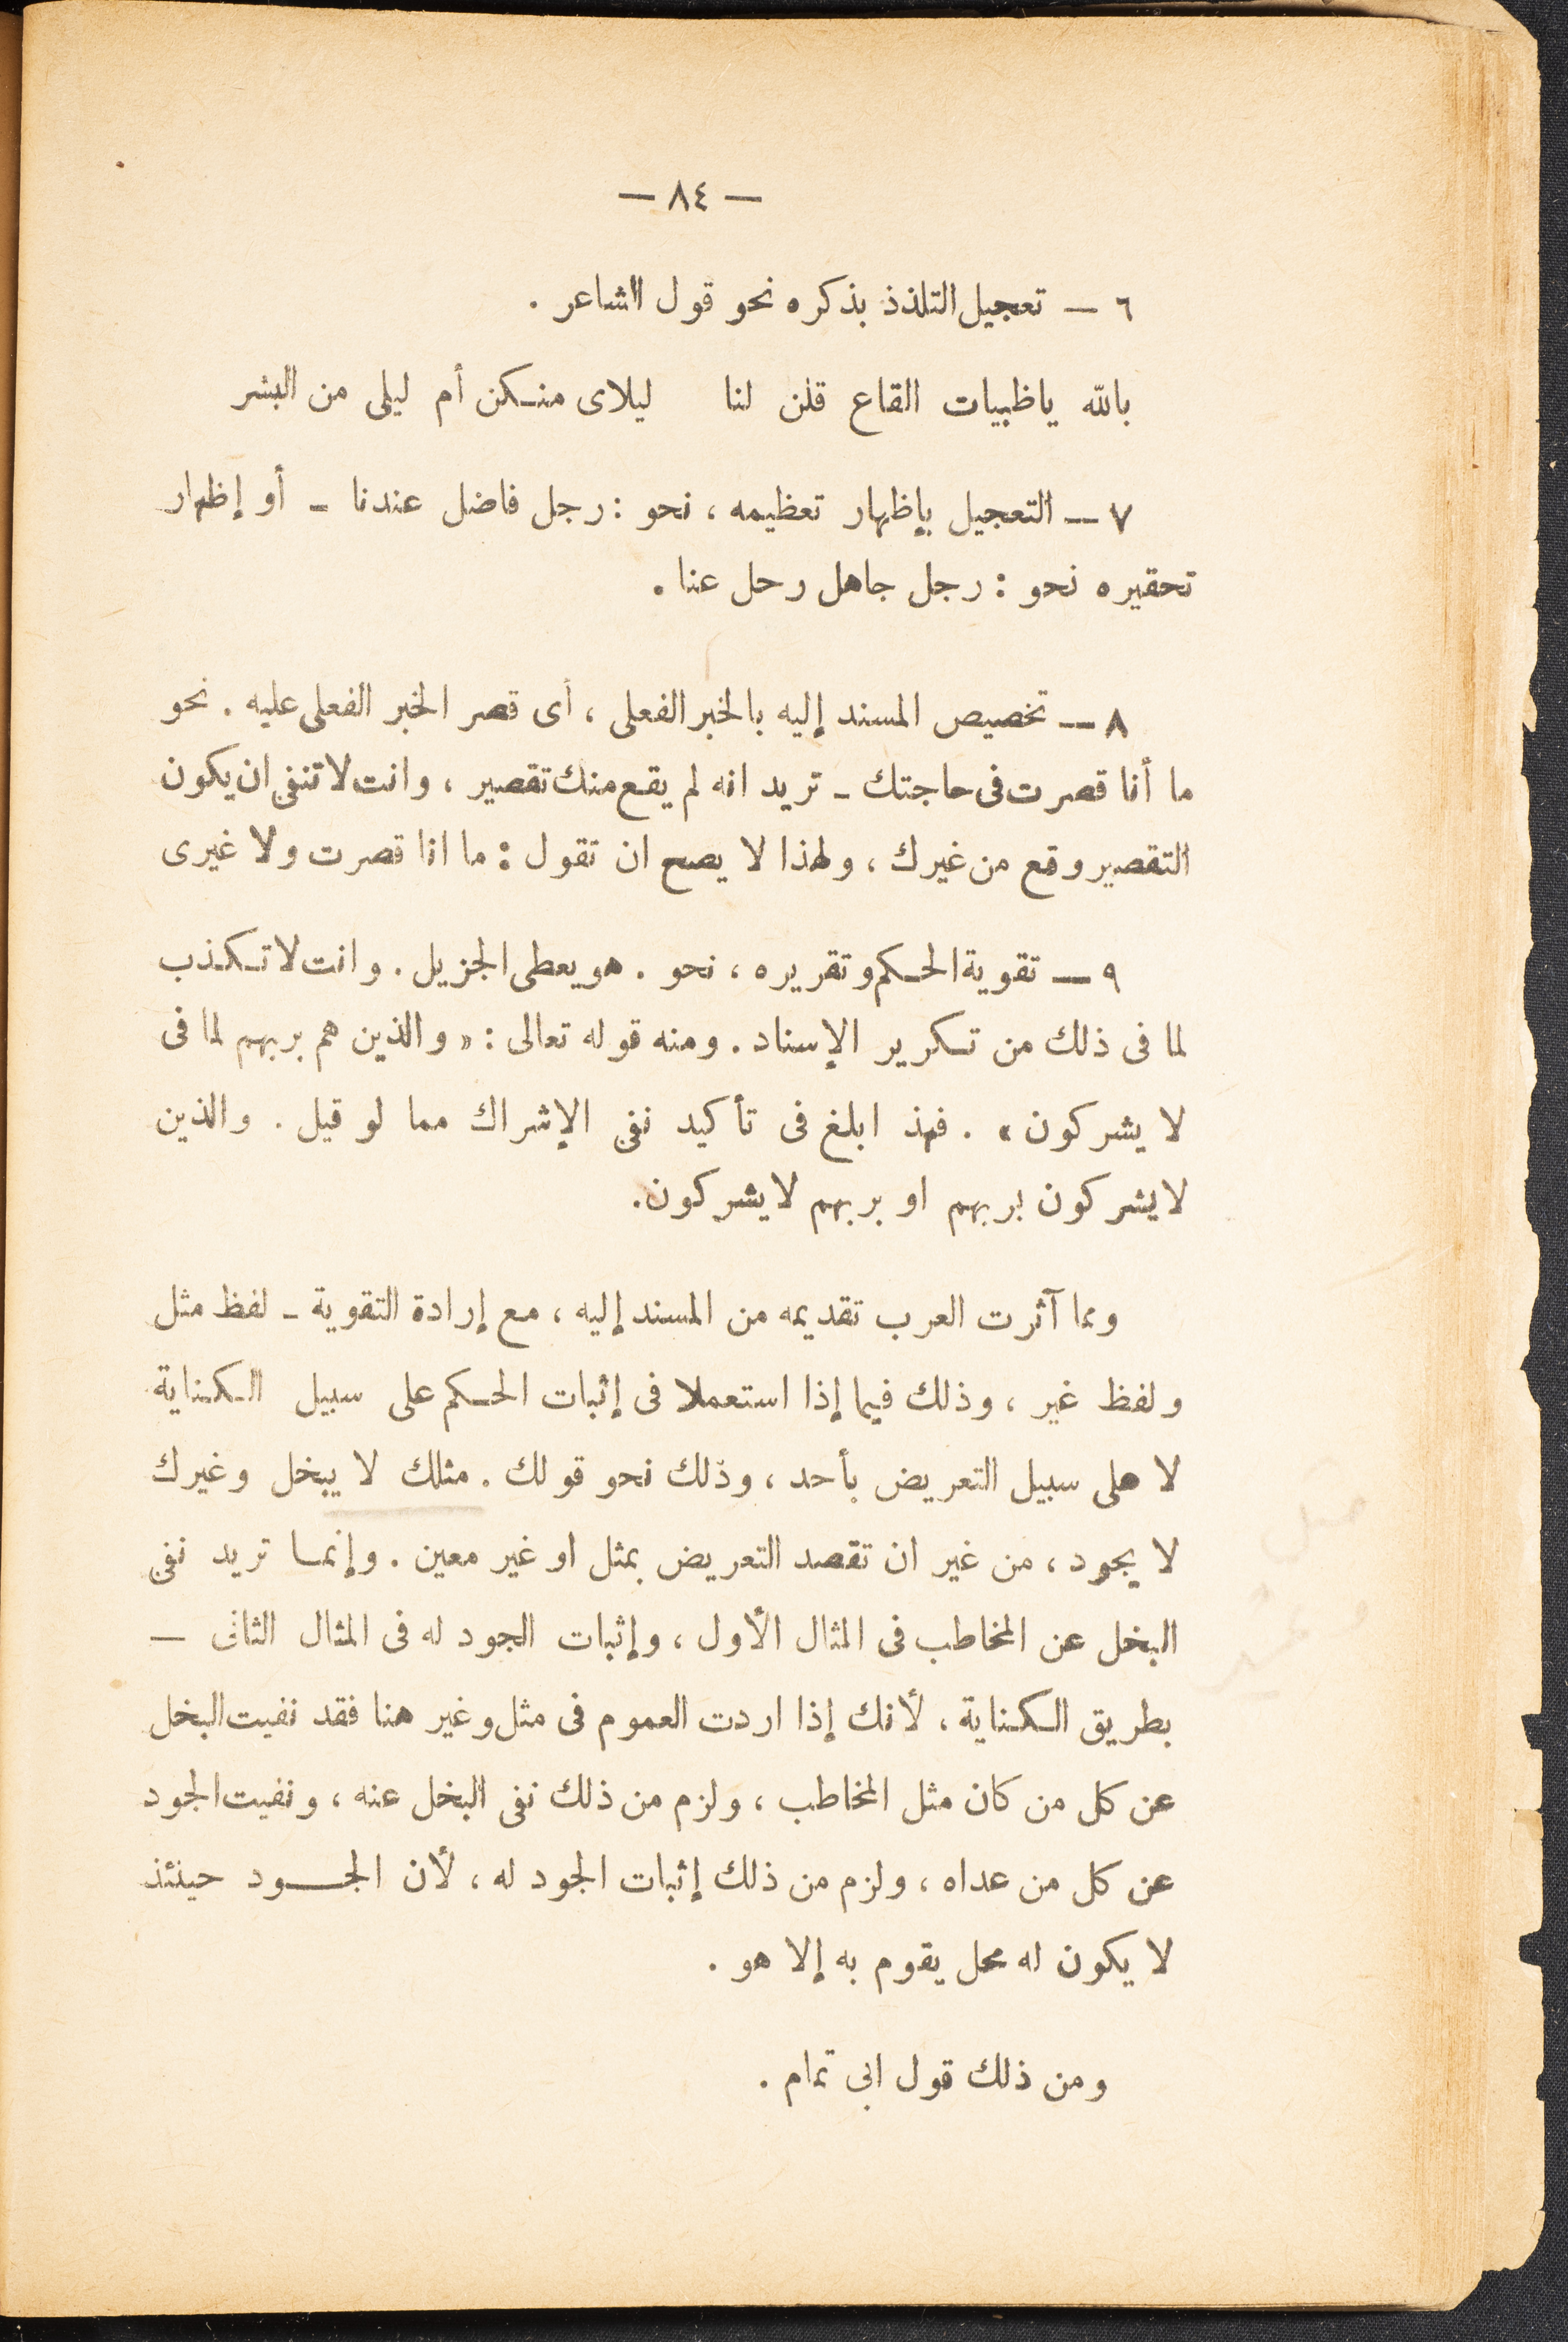 — ٨٤ —
٦ — تعجيل التلذذ بذكره نحو قول الشاعر .
بالله ياظبيات القاع قلن لنا ليلاى منكن أم ليلى من البشر
٧ — التعجيل بإظهار تعظيمه ، نحو : رجل فاضل عندنا - أو إظهار
تحقيره نحو : رجل جاهل رحل عنا .
٨ — تخصيص المسند إليه بالخبر الفعلى ، أى قصر الخبر الفعلى عليه . نحو
ما أنا قصرت فى حاجتك - تريد انه لم يقع منك تقصير ، وانت لا تنفى ان يكون
التقصير وقع من غيرك ، ولهذا لا يصح ان تقول : ما انا قصرت ولا غيرى
٩ — تقوية الحكم وتقريره ، نحو . هو يعطى الجزيل . وانت لا تكذب
لما فى ذلك من تكرير الإسناد . ومنه قوله تعالى : « والذين هم بربهم لما فى
لا يشركون » . فهذ ابلغ فى تأكيد نفى الإشراك مما لو قيل . والذين
لا يشركون بربهم او بربهم لا يشركون .
ومما آثرت العرب تقديمه من المسند إليه ، مع إرادة التقوية - لفظ مثل
ولفظ غير ، وذلك فيما إذا استعملا فى إثبات الحكم على سبيل الكناية
لا على سبيل التعريض بأحد ، وذلك نحو قولك . مثلك لا يبخل وغيرك
لا يجود ، من غير ان تقصد التعريض بمثل او غير معين . وإنما تريد نفى
البخل عن المخاطب فى المثال الأول ، وإثبات الجود له فى المثال الثانى —
بطريق الكناية ، لأنك إذا اردت العموم فى مثل وغير هنا فقد نفيت البخل
عن كل من كان مثل المخاطب ، ولزم من ذلك نفى البخل عنه ، ونفيت الجود
عن كل من عداه ، ولزم من ذلك إثبات الجود له ، لأن الجود حينئذ
لا يكون له محل يقوم به إلا هو .
ومن ذلك قول ابى تمام .